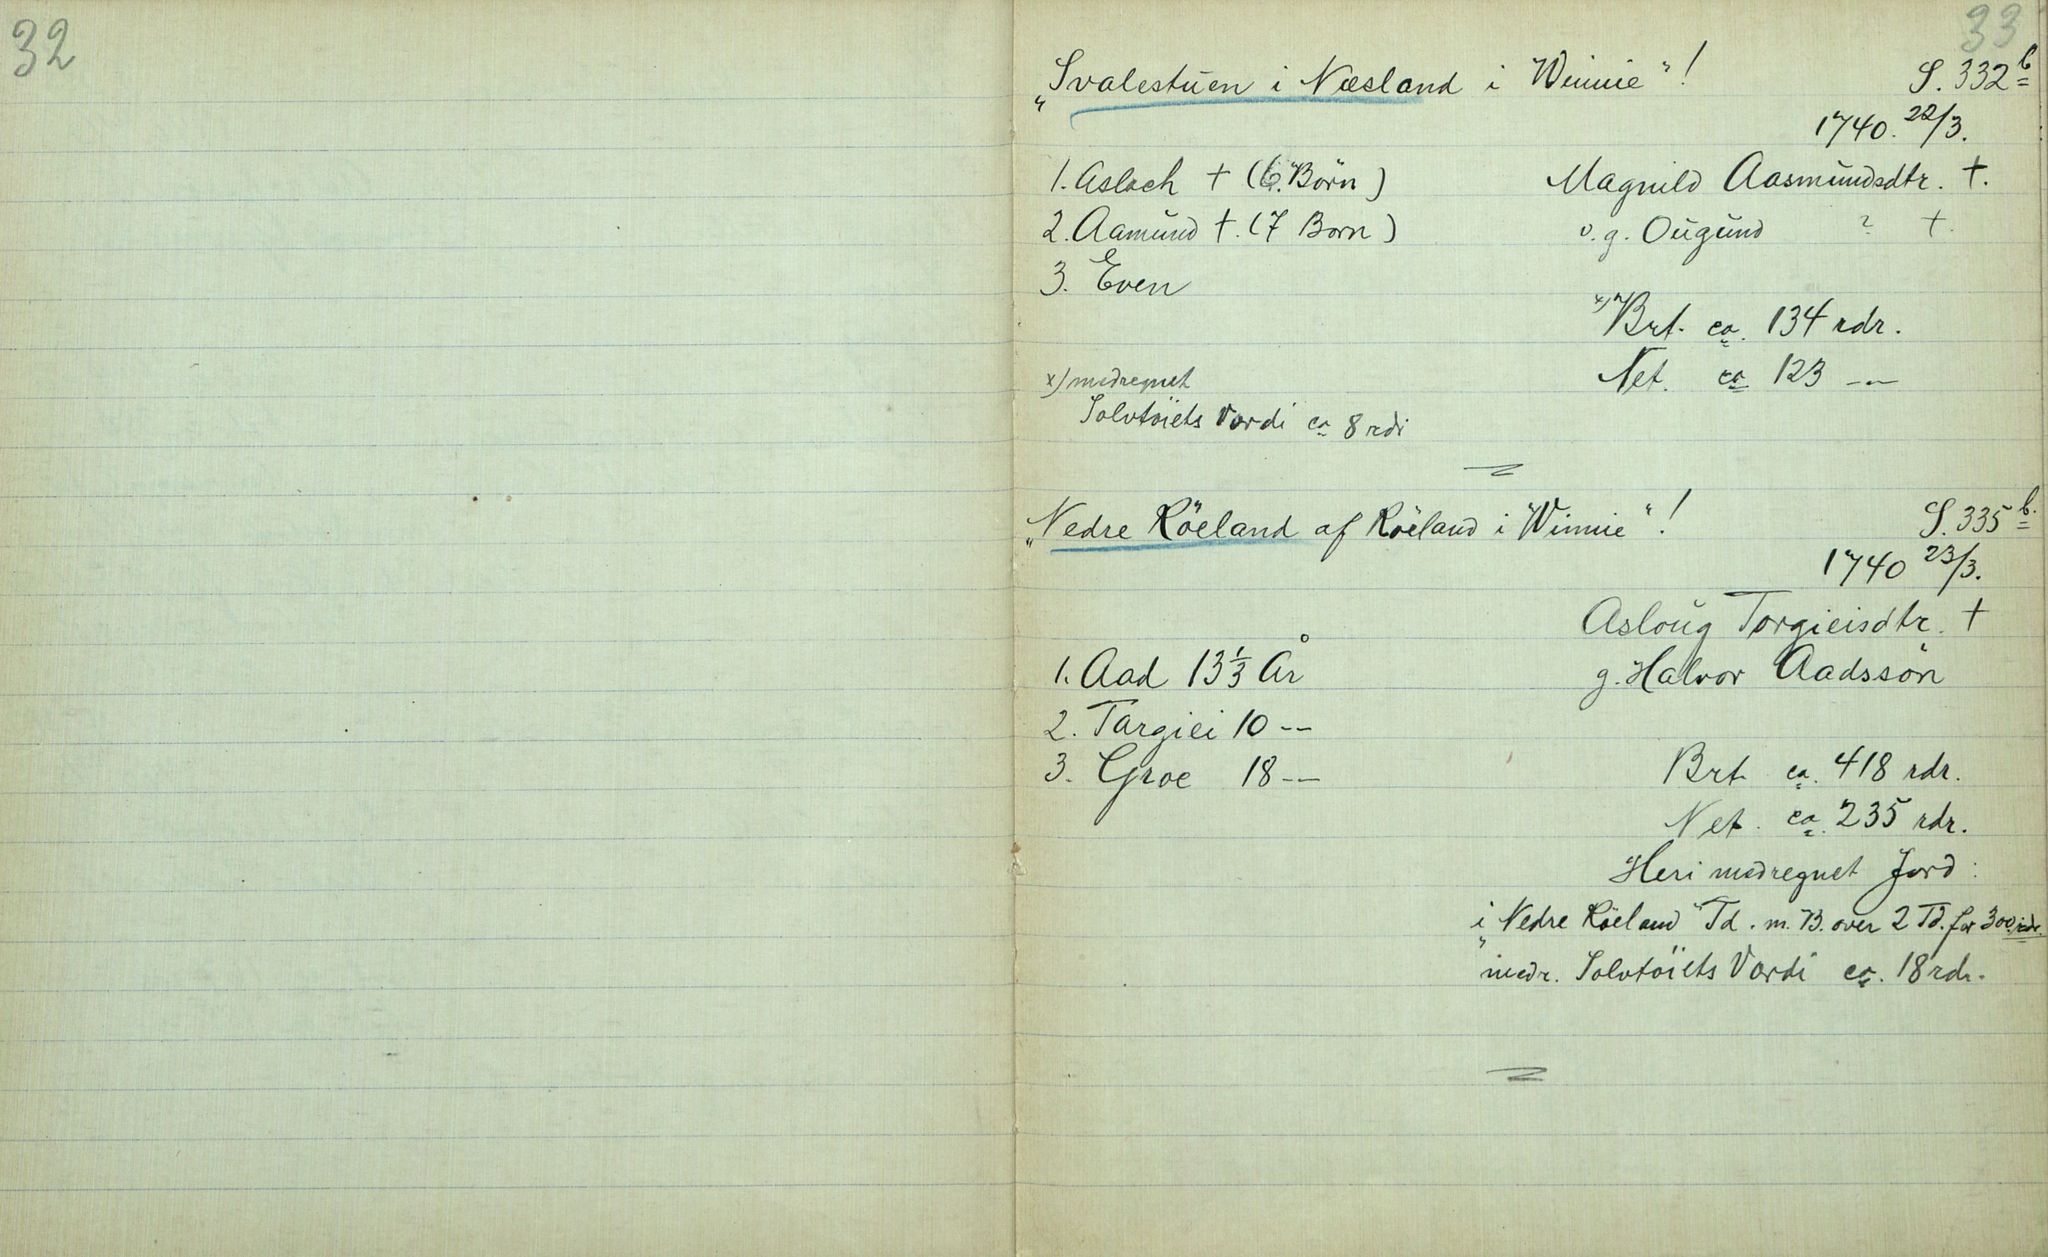 32
33
„Svalestuen i Næsland i Winnie“! S. 332 b
1740. 22/3.
1. Asloch † (6. Börn) Magnild Aasmundsdtr. †.
2. Aamund †. (7 Børn) v. g. Ougund ? †.
3. Even
x) Brt. ca. 134 rdr.
x) medregnet Net. ca 123 -„-
Solvtöiets Værdi ca 8 rdr
„Nedre Röeland af Röeland i Winnie“! S. 335 b.
1740 23/3.
Asloug Torgieisdtr. †
1. Aad 13 1/3 År g. Halvor Aadssön
2. Targiei 10 -„-
3. Groe 18 -„- Brt ca. 418 rdr.
Net. ca. 235 rdr.
Heri medregnet Jord:
i „Nedre Röeland“ Td. m. B. over 2 Td. for 300 rdr.
medr. Solvtöiets Værdi ca. 18 rdr.